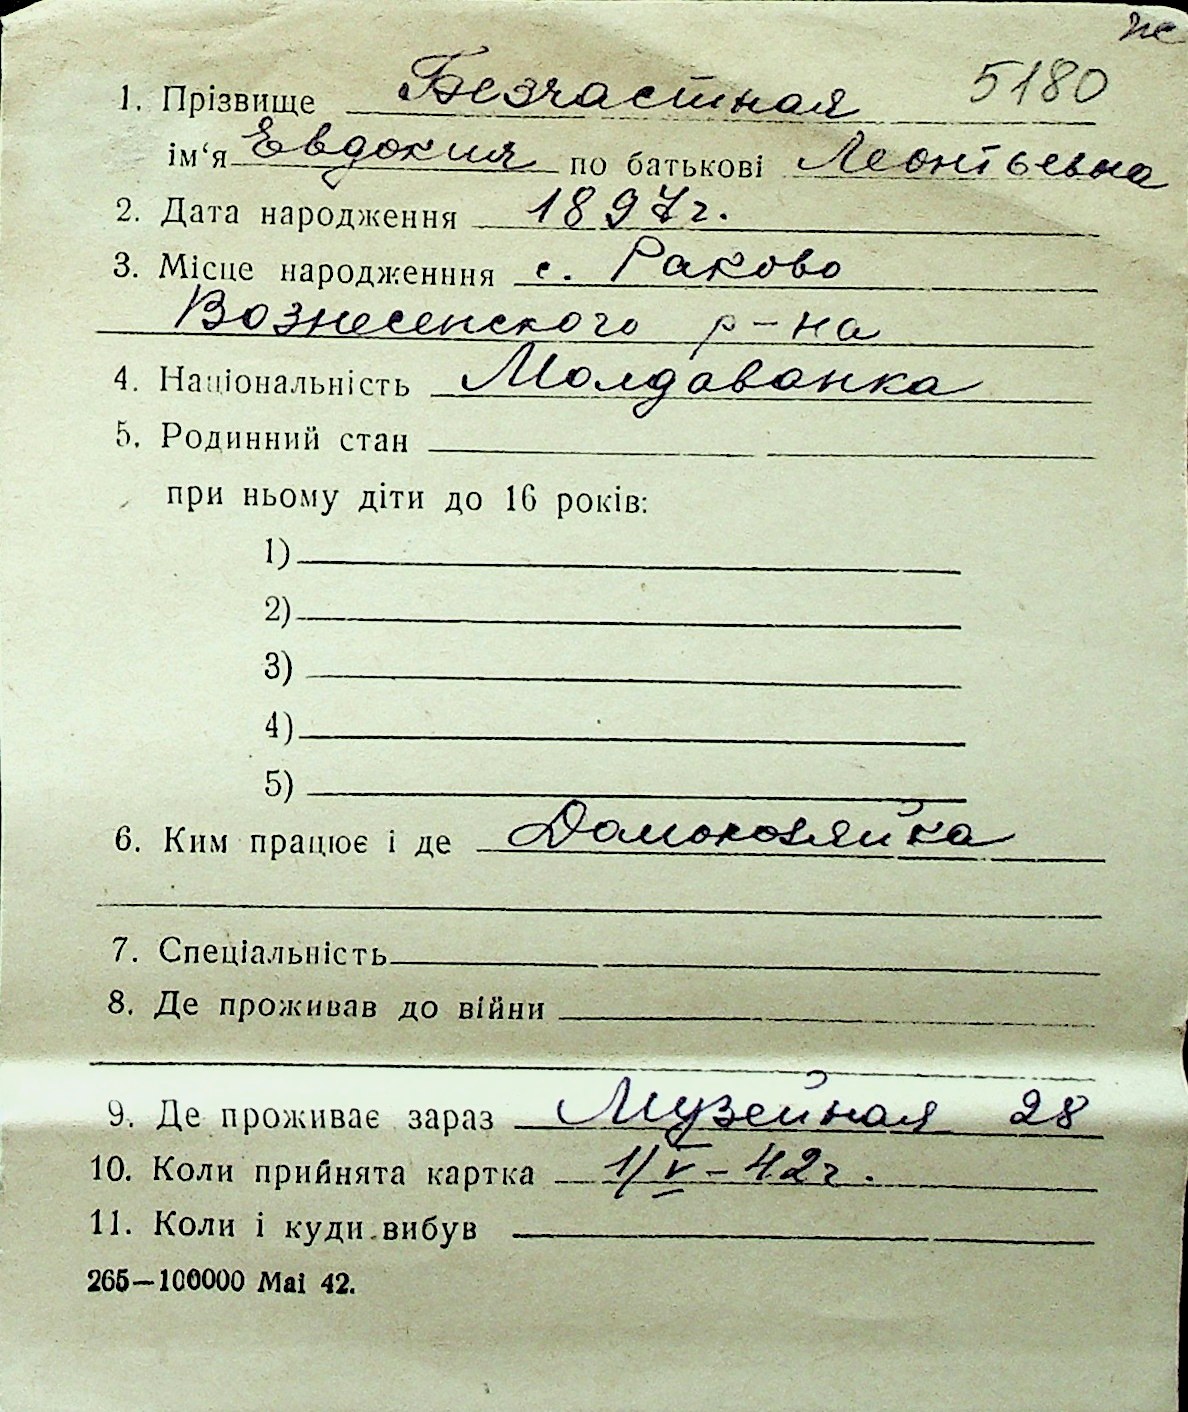 же
5180
1. Прізвище Безчастная
ім‘я Евдокия по батькові Леонтьевна
2. Дата народження 1897г.
3. Місце народженння с. Раково
Вознесенского р-на
4. Національність Молдаванка
5. Родинний стан
при ньому діти до 16 років:
1)
2)
3)
4)
5)
6. Ким працює і де Домохозяйка
7. Спеціальність
8. Де проживав до війни
9. Де проживає зараз Музейная 28
10. Коли прийнята картка 1/V-42г.
11. Коли і куди вибув
265—100000 Mai 42.